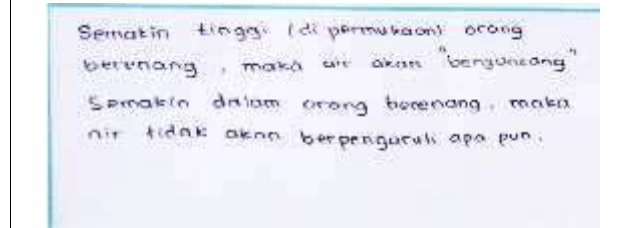 Semakin tinggi (di permukaan) orang
berenang, maka air akan "berguncang"
Semakin dalam orang berenang, maka
air tidak akan berpengaruh apa pun.